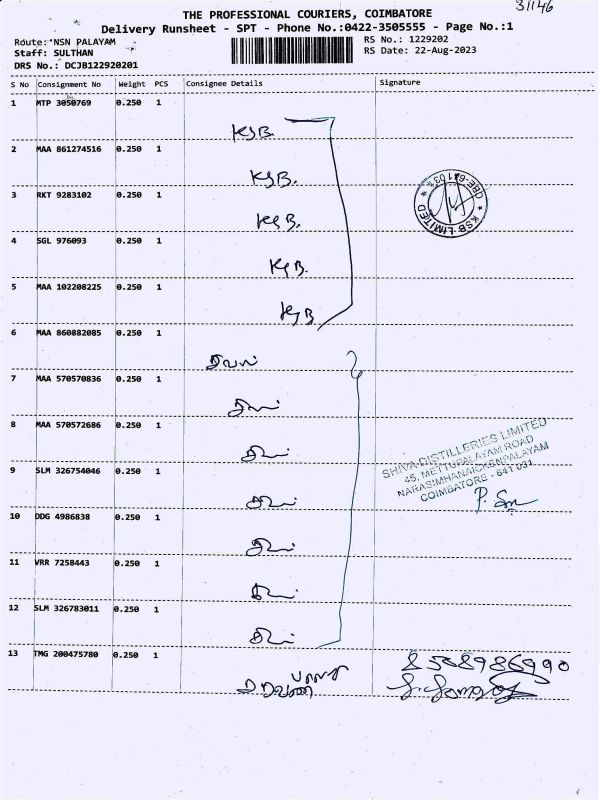 31146
THE PROFESSIONAL COURIERS, COIMBATORE
Delivery Runsheet - SPT - Phone No.:0422-3505555 - Page No.:1
Route: NSN PALAYAM
RS No.: 1229202
Staff: SULTHAN
RS Date: 22-Aug-2023
DRS No.: DCJB122920201
S No Consignment No Weight PCS Consignee Details Signature
1 MTP 3050769 0.250 1
KSB.
2 MAA 861274516 0.250 1
KSB.
3 RKT 9283102 0.250 1
KSB.
KSB LIMITED * CBE-641031 *
4 SGL 976093 0.250 1
KSB.
5 MAA 102208225 0.250 1
KSB
6 MAA 860882085 0.250 1
7 MAA 570570836 0.250 1
8 MAA 570572686 0.250 1
SHIVA DISTILLERIES LIMITED
45, METTUPALAYAM ROAD
NARASIMHANAICKENPALAYAM
COIMBATORE - 641 031
9 SLM 326754046 0.250 1
10 DDG 4986838 0.250 1
11 VRR 7258443 0.250 1
12 SLM 326783011 0.250 1
13 TMG 200475780 0.250 1